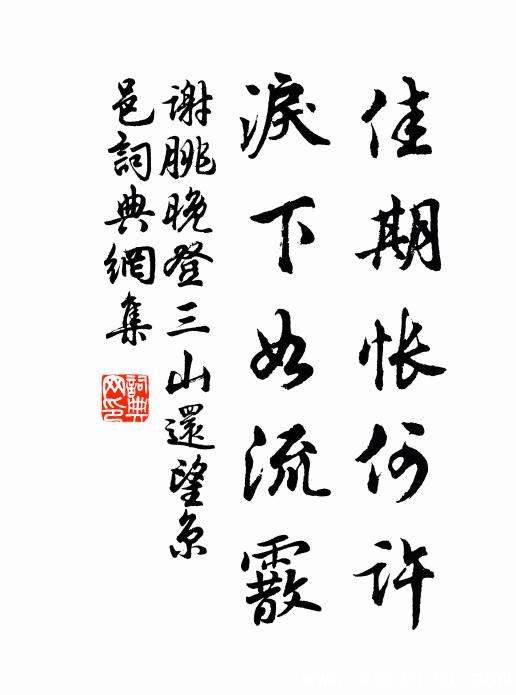 佳期悵何許
淚下如流霰
謝朓晚登三山還望京
邑詞典網集
詞典
网印